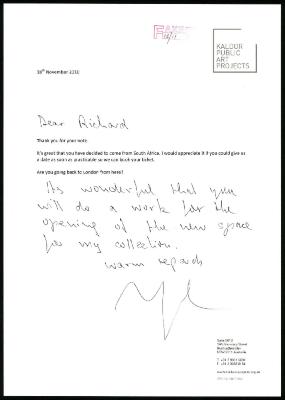 FAXED
KALDOR
PUBLIC
ART
PROJECTS
18th November 2010
Dear Richard
Thank you for your note.
It's great that you have decided to come from South Africa. I would appreciate it if you could give us
a date as soon as practicable so we can book your ticket.
Are you going back to London from here?
Its wonderful that you
will do a work for the
opening of the new space
for my collection.
warm regards